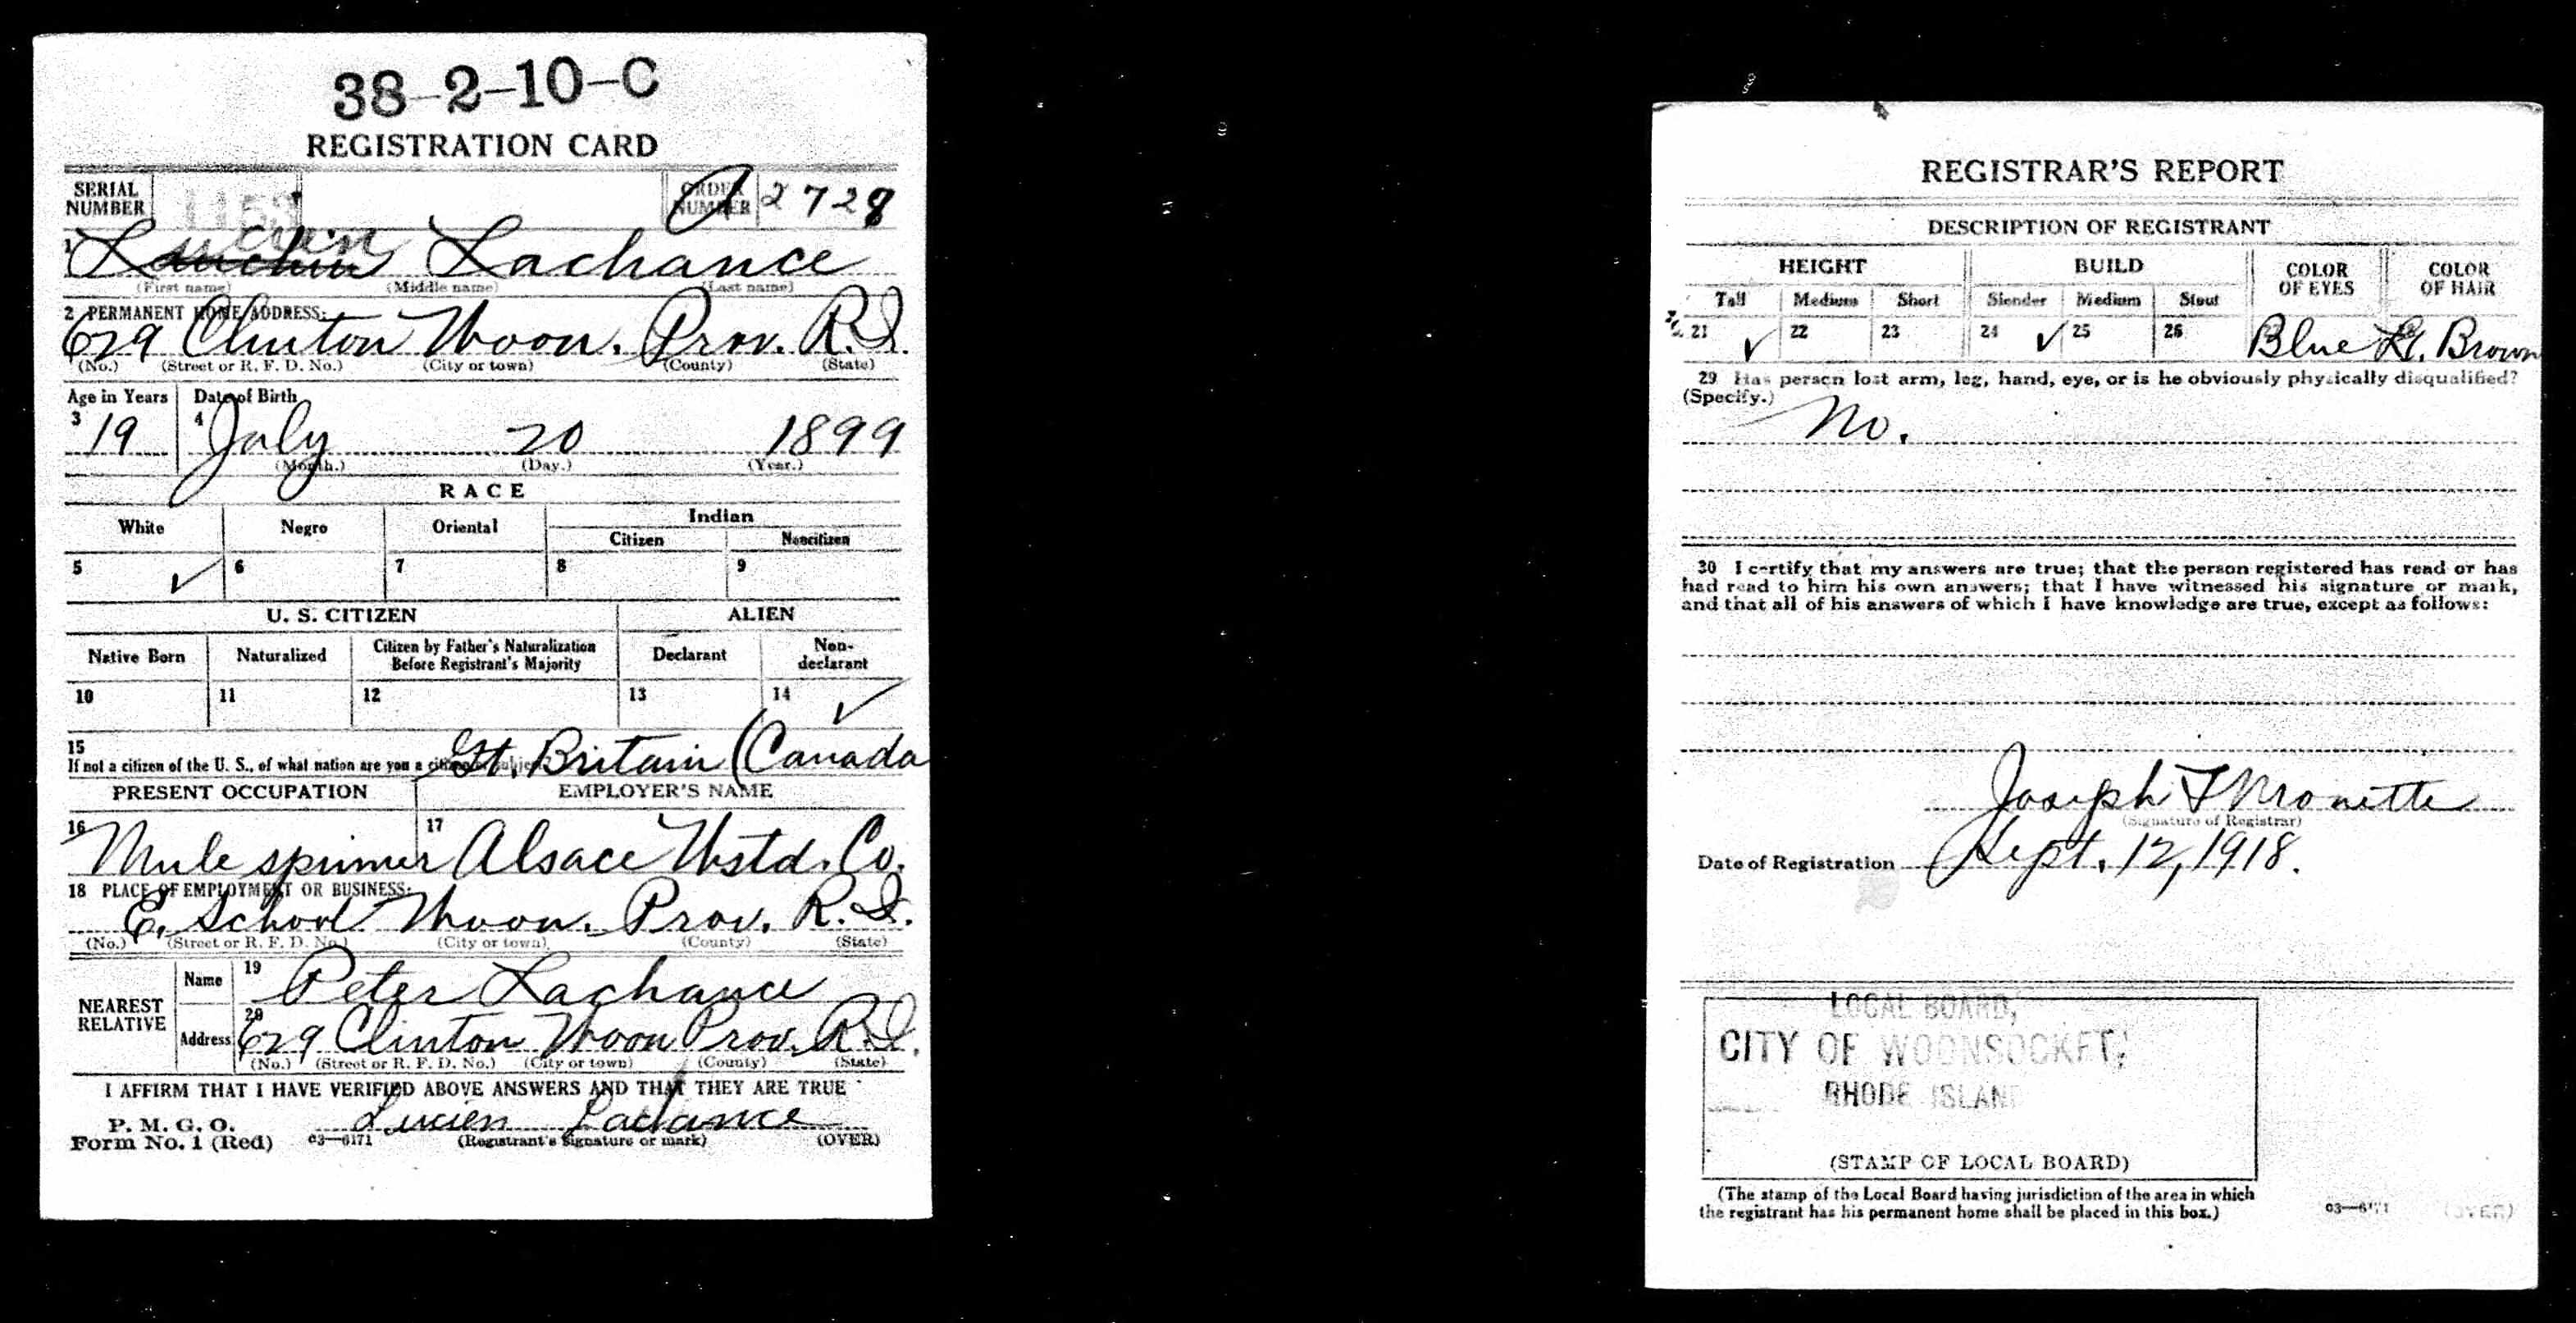 38-2-10-C
REGISTRATION CARD
SERIAL NUMBER ORDER NUMBER A 2728
1 Lucien Lachance
(First name) (Middle name) (Last name)
2 PERMANENT HOME ADDRESS:
629 Clinton Woon. Prov. R.I.
(No.) (Street or R. F. D. No.) (City or town) (County) (State)
Age in Years Date of Birth
3 19 4 July 20 1899
(Month.) (Day.) (Year.)
RACE
White Negro Oriental Indian
Citizen Noncitizen
5 ✓ 6 7 8 9
U. S. CITIZEN ALIEN
Native Born Naturalized Citizen by Father's Naturalization Before Registrant's Majority Declarant Non-declarant
10 11 12 13 14 ✓
15
If not a citizen of the U. S., of what nation are you a citizen or subject? Gt. Britain (Canada
PRESENT OCCUPATION EMPLOYER'S NAME
16 Mule spinner 17 Alsace Wstd. Co.
18 PLACE OF EMPLOYMENT OR BUSINESS:
E. School Woon. Prov. R.I.
(No.) (Street or R. F. D. No.) (City or town) (County) (State)
NEAREST RELATIVE
Name 19 Peter Lachance
Address 20 629 Clinton Woon Prov. R.I.
(No.) (Street or R. F. D. No.) (City or town) (County) (State)
I AFFIRM THAT I HAVE VERIFIED ABOVE ANSWERS AND THAT THEY ARE TRUE
P. M. G. O.
Form No. 1 (Red) 03—6171 Lucien Lachance
(Registrant's signature or mark) (OVER)
REGISTRAR'S REPORT
DESCRIPTION OF REGISTRANT
HEIGHT BUILD COLOR OF EYES COLOR OF HAIR
Tall Medium Short Slender Medium Stout
21 ✓ 22 23 24 ✓ 25 26 Blue Lt. Brown
29 Has person lost arm, leg, hand, eye, or is he obviously physically disqualified?
(Specify.) No.
30 I certify that my answers are true; that the person registered has read or has
had read to him his own answers; that I have witnessed his signature or mark,
and that all of his answers of which I have knowledge are true, except as follows:
Joseph F Monette
(Signature of Registrar)
Date of Registration Sept. 12, 1918.
LOCAL BOARD,
CITY OF WOONSOCKET,
RHODE ISLAND
(STAMP OF LOCAL BOARD)
(The stamp of the Local Board having jurisdiction of the area in which
the registrant has his permanent home shall be placed in this box.)
03—6171 (OVER)